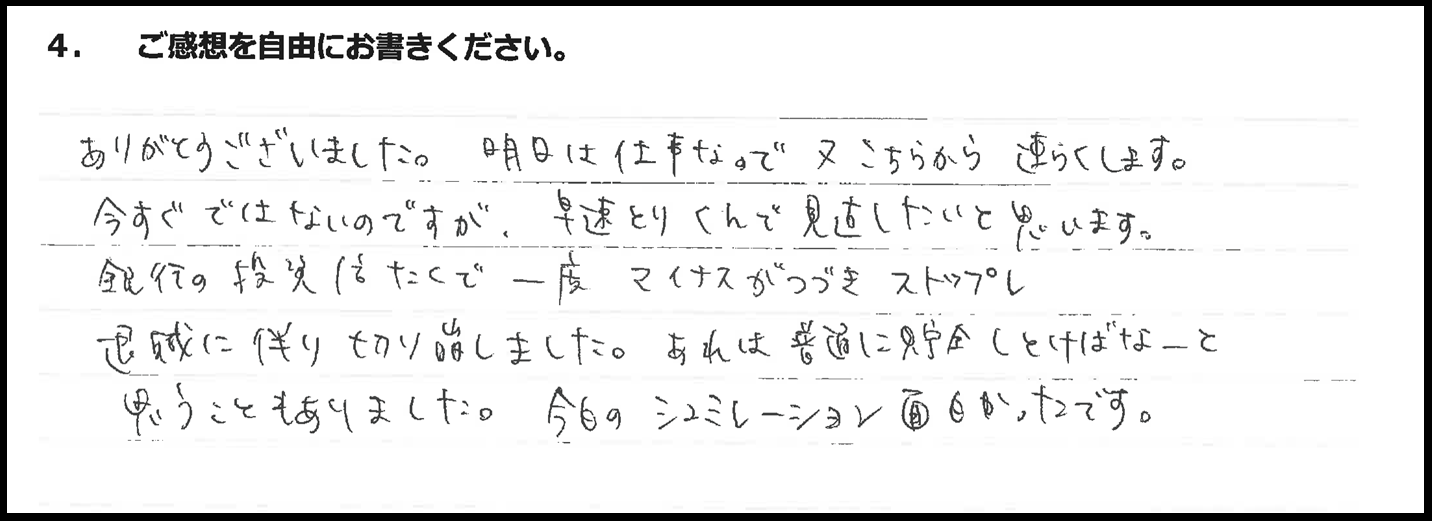 4. ご感想を自由にお書きください。
ありがとうございました。 明日は仕事なので 又こちらから 連らくします。
今すぐではないのですが、 早速とりくんで見直したいと思います。
銀行の投資信たくで一度 マイナスがつづき ストップし
退職に伴り切り崩しました。 あれは普通に貯金しとけばなーと
思うこともありました。 今日のシュミレーション面白かったです。